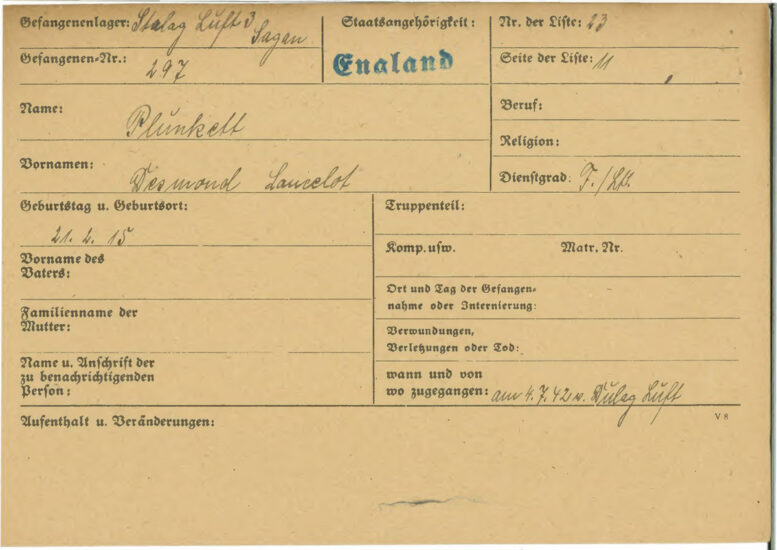 Gefangenenlager: Stalag Luft 3 Sagan
Staatsangehörigkeit: England
Nr. der Liste: 23
Gefangenen-Nr.: 297
Seite der Liste: 11
Name: Plunkett
Beruf:
Religion:
Vornamen: Desmond Lancelot
Dienstgrad: F./Lt.
Geburtstag u. Geburtsort:
21. 2. 15
Truppenteil:
Vorname des
Vaters:
Komp. usw. Matr. Nr.
Ort und Tag der Gefangen-
nahme oder Internierung:
Familienname der
Mutter:
Verwundungen,
Verletzungen oder Tod:
Name u. Anschrift der
zu benachrichtigenden
Person:
wann und von
wo zugegangen: am 4.7.42 v. Dulag Luft
Aufenthalt u. Veränderungen:
V 8